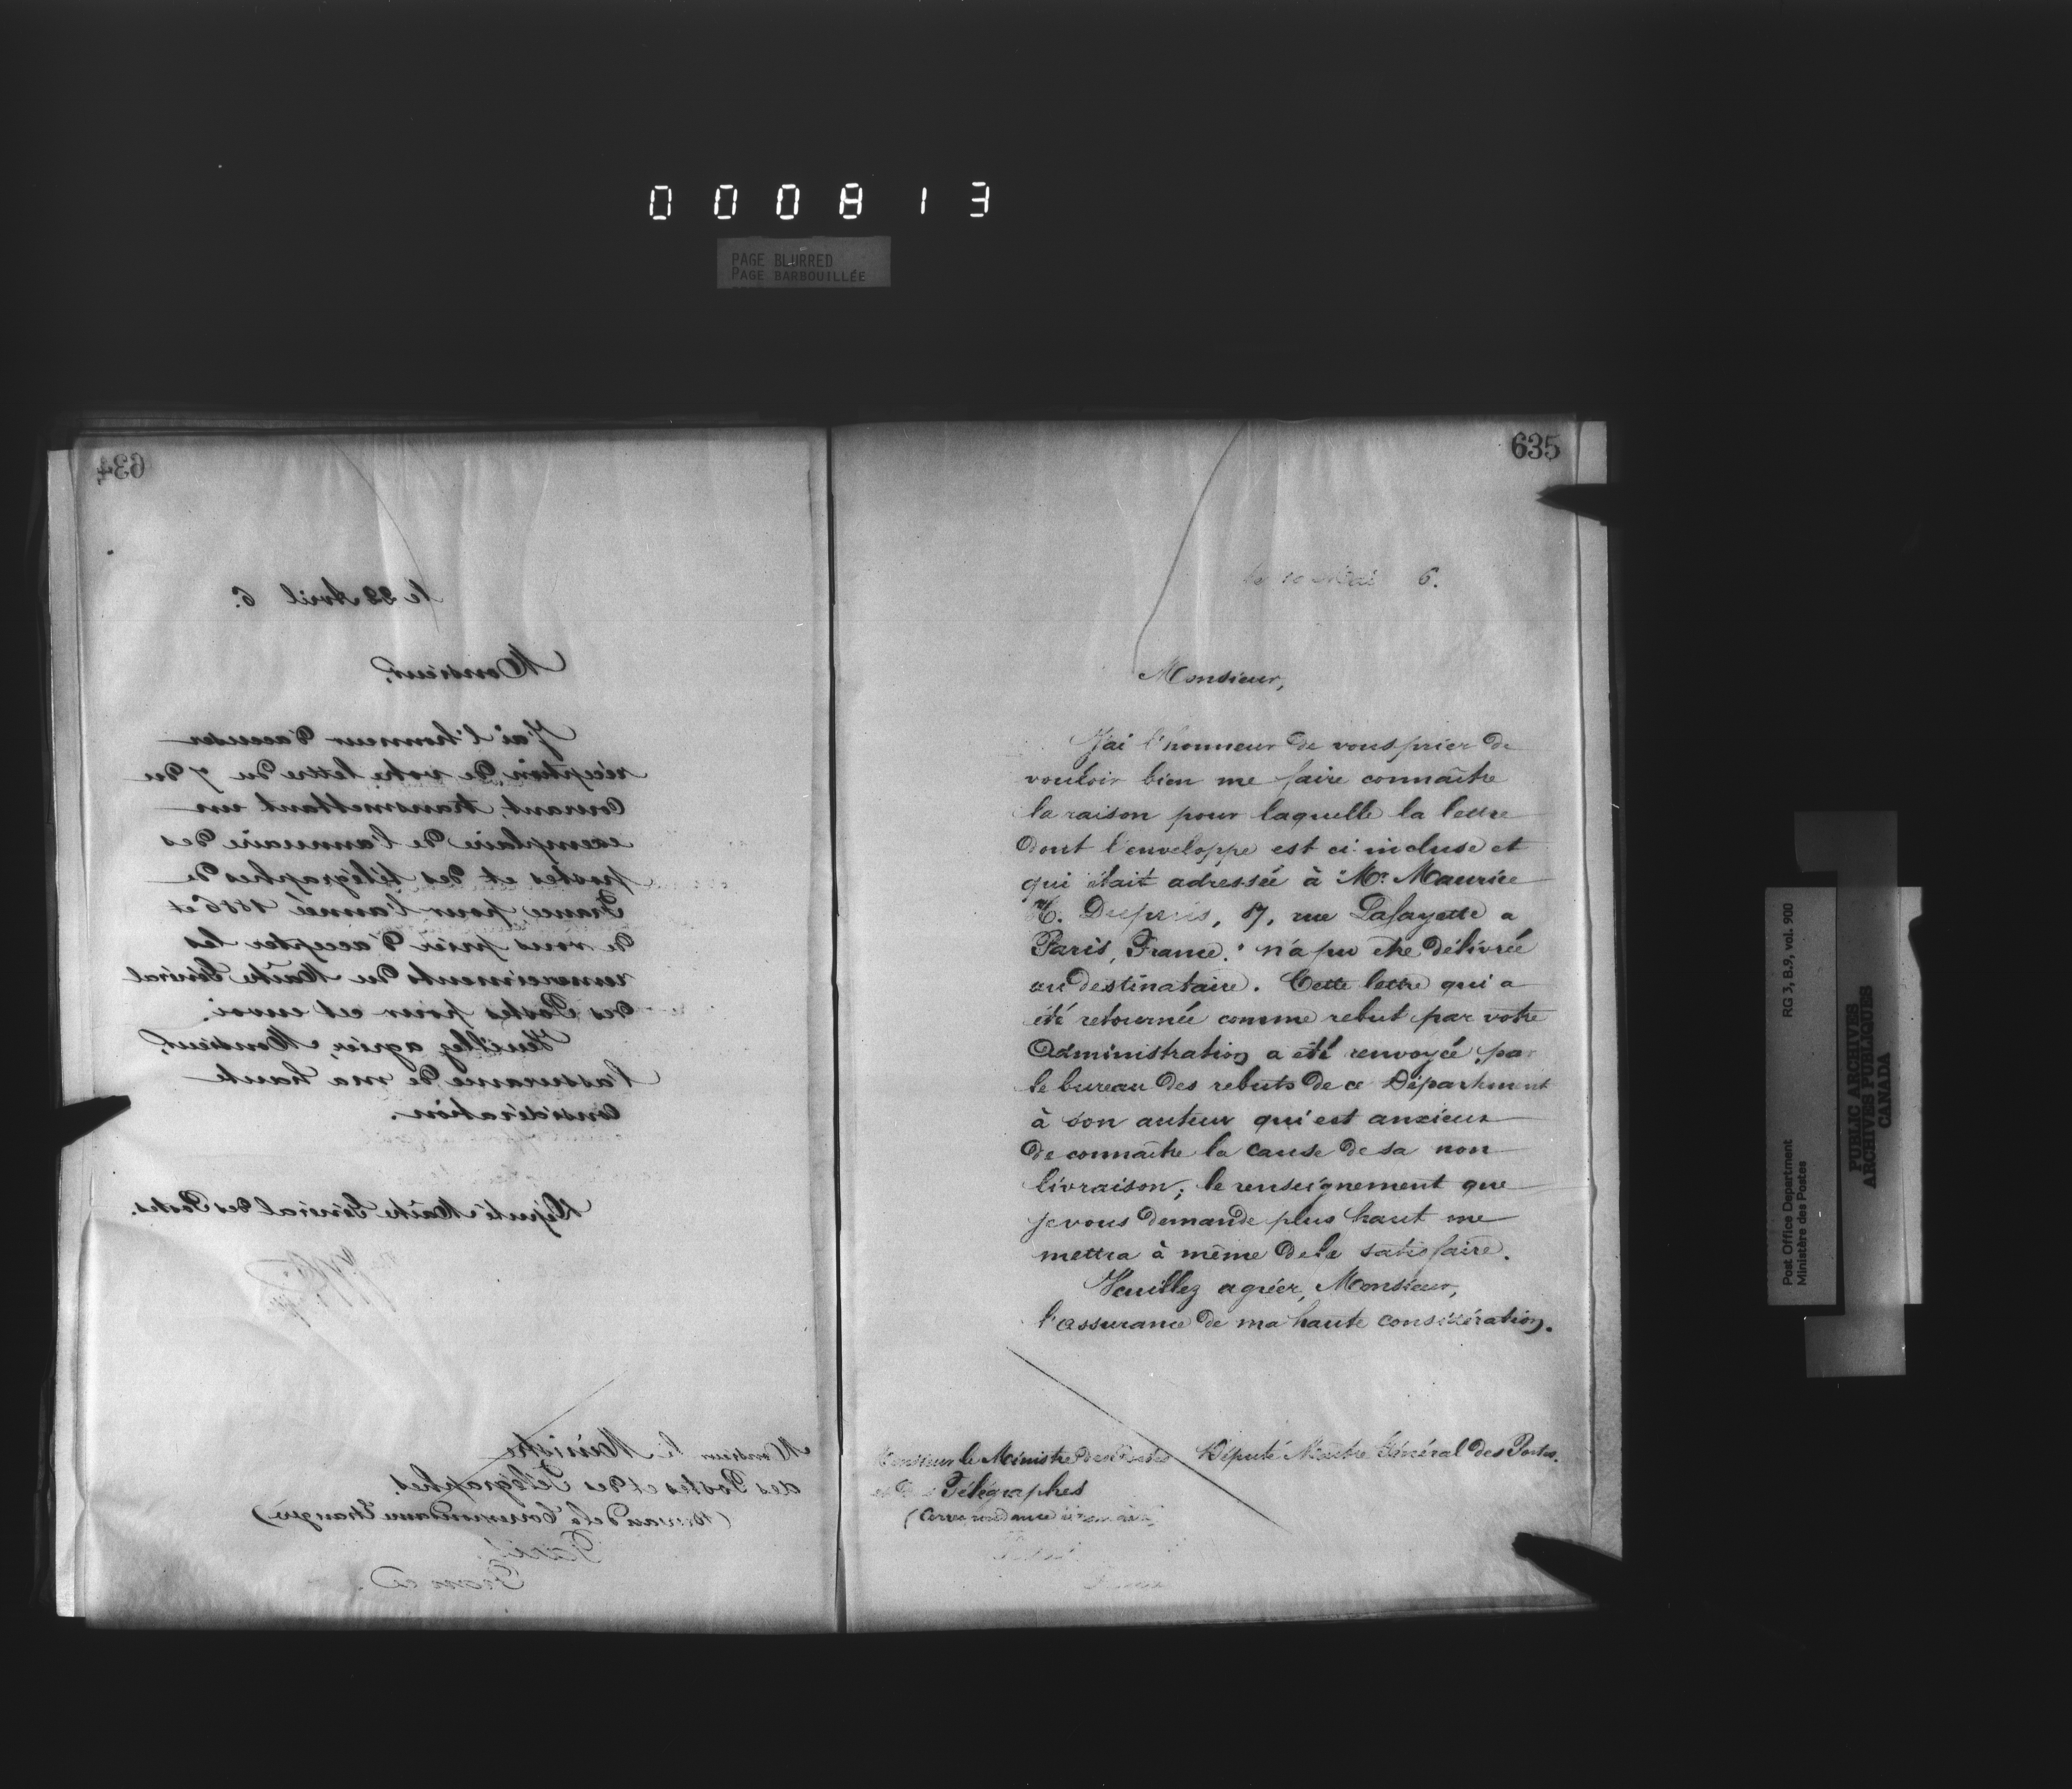 000813
PAGE BLURRED
PAGE BARBOUILLÉE
634
le 22 Avril 6.
Monsieur,
J'ai l'honneur d'accuser
réception de votre lettre du 7 du
courant, transmettant un
exemplaire de l'annuaire des
postes et des télégraphes de
France pour l'année 1886 et
de vous prier d'accepter les
remerciments du Maître Général
des Postes pour cet envoi.
Veuillez agréer, Monsieur,
l'assurance de ma haute
considération.
Député Maître Général des Postes.
Monsieur le Ministre
des Postes et des Télégraphes.
(Bureau de la Correspondance Etrangère)
Paris,
France.
635
le 10 Mai 6.
Monsieur,
J'ai l'honneur de vous prier de
vouloir bien me faire connaître
la raison pour laquelle la lettre
dont l'enveloppe est ci-incluse et
qui était adressée à "Mr. Maurice
Dupuis, 87, rue Lafayette a
Paris, France." n'a pu être délivrée
au destinataire. Cette lettre qui a
été retournée comme rebut par votre
Administration a été renvoyée par
le bureau des rebuts de ce Département
à son auteur qui est anxieux
de connaître la cause de sa non
livraison; le renseignement que
je vous demande plus haut me
mettra à même de le satisfaire.
Veuillez agréer, Monsieur,
l'assurance de ma haute considération.
Député Maître Général des Postes.
Monsieur le Ministre des Postes
et des Télégraphes
(Correspondance étrangère)
Paris
France
Post Office Department RG 3, B.9, vol. 900
Ministère des Postes
PUBLIC ARCHIVES
ARCHIVES PUBLIQUES
CANADA